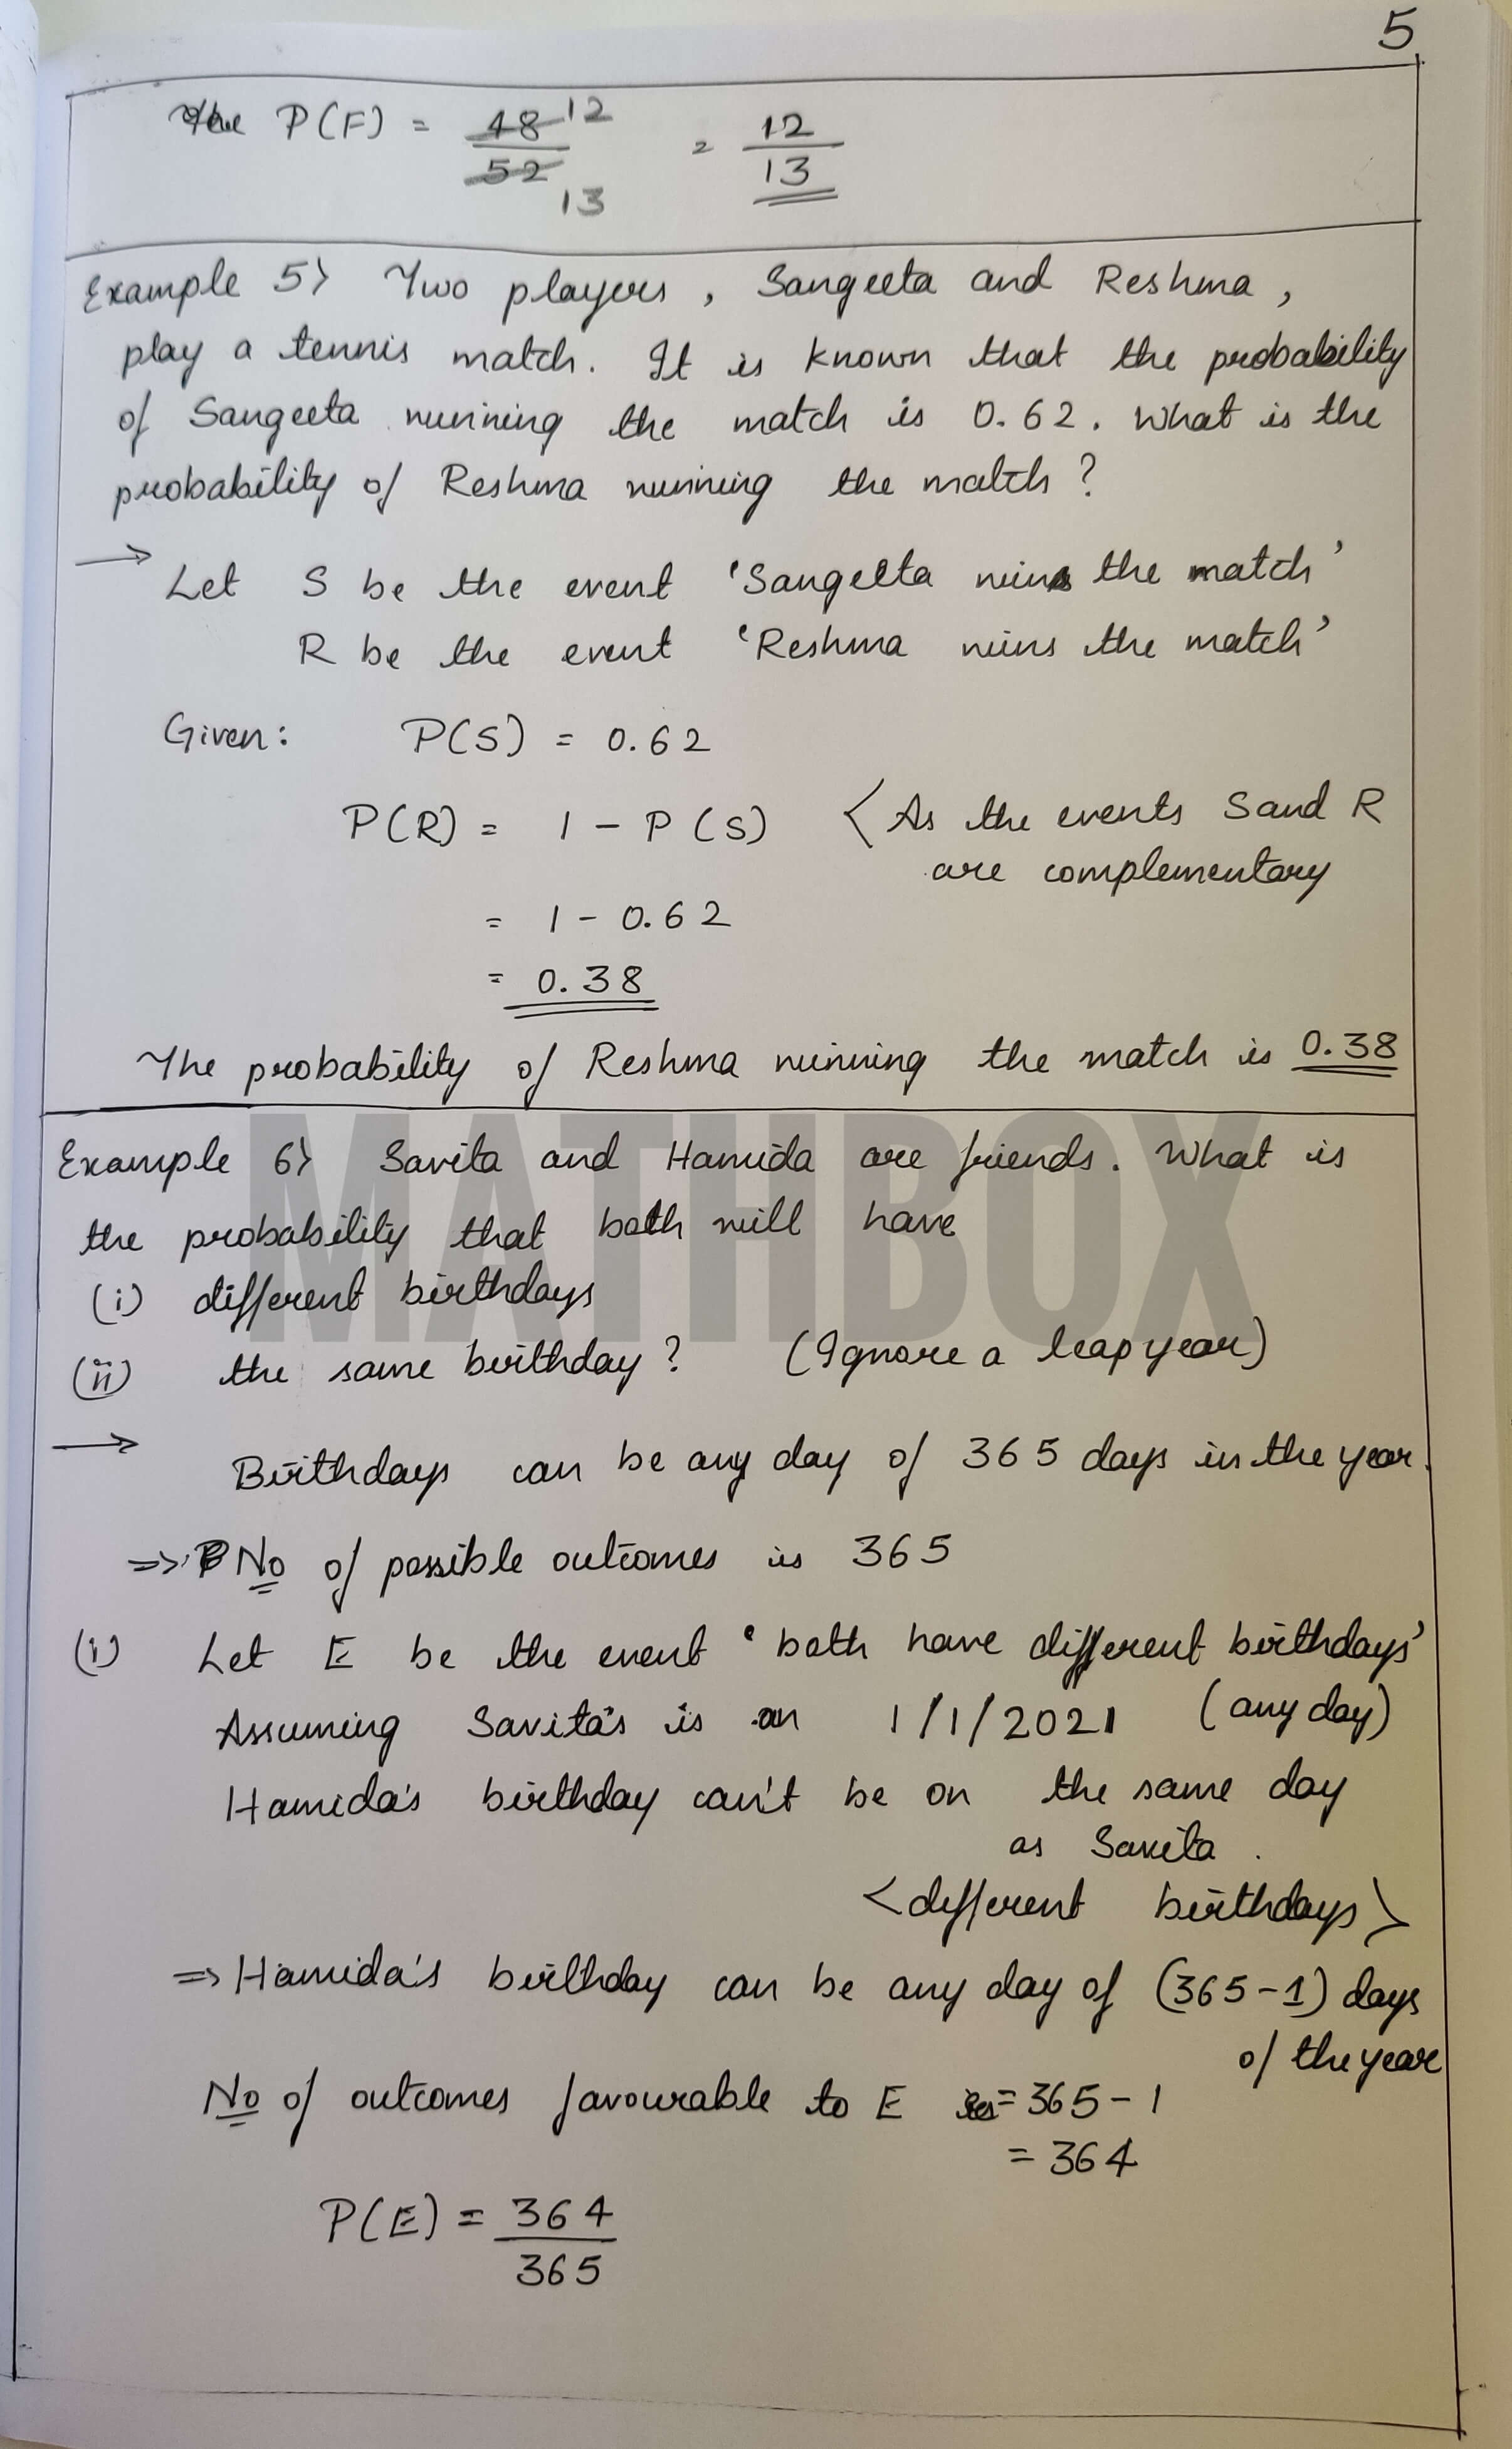 5
The P(F) = 48 12 / 52 13 = 12 / 13
Example 5> Two players, Sangeeta and Reshma,
play a tennis match. It is known that the probability
of Sangeeta winning the match is 0.62. What is the
probability of Reshma winning the match?
→ Let S be the event 'Sangeeta wins the match'
R be the event 'Reshma wins the match'
Given: P(S) = 0.62
P(R) = 1 - P(S) < As the events S and R
are complementary
= 1 - 0.62
= 0.38
The probability of Reshma winning the match is 0.38
MATHBOX
Example 6> Savita and Hamida are friends. What is
the probability that both will have
(i) different birthdays
(ii) the same birthday? (Ignore a leap year)
→ Birthdays can be any day of 365 days in the year.
=> No of possible outcomes is 365
(i) Let E be the event 'both have different birthdays'
Assuming Savita's is on 1/1/2021 (any day)
Hamida's birthday can't be on the same day
as Savita.
<different birthdays>
=> Hamida's birthday can be any day of (365-1) days
of the year
No of outcomes favourable to E = 365 - 1
= 364
P(E) = 364 / 365